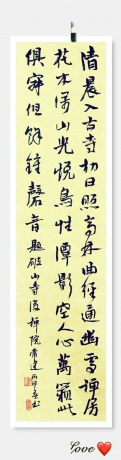 清晨入古寺初日照高林曲徑通幽處禪房
花木深山光悅鳥性潭影空人心萬籟此
俱寂但餘鐘磬音題破山寺後禪院常建
Love ❤